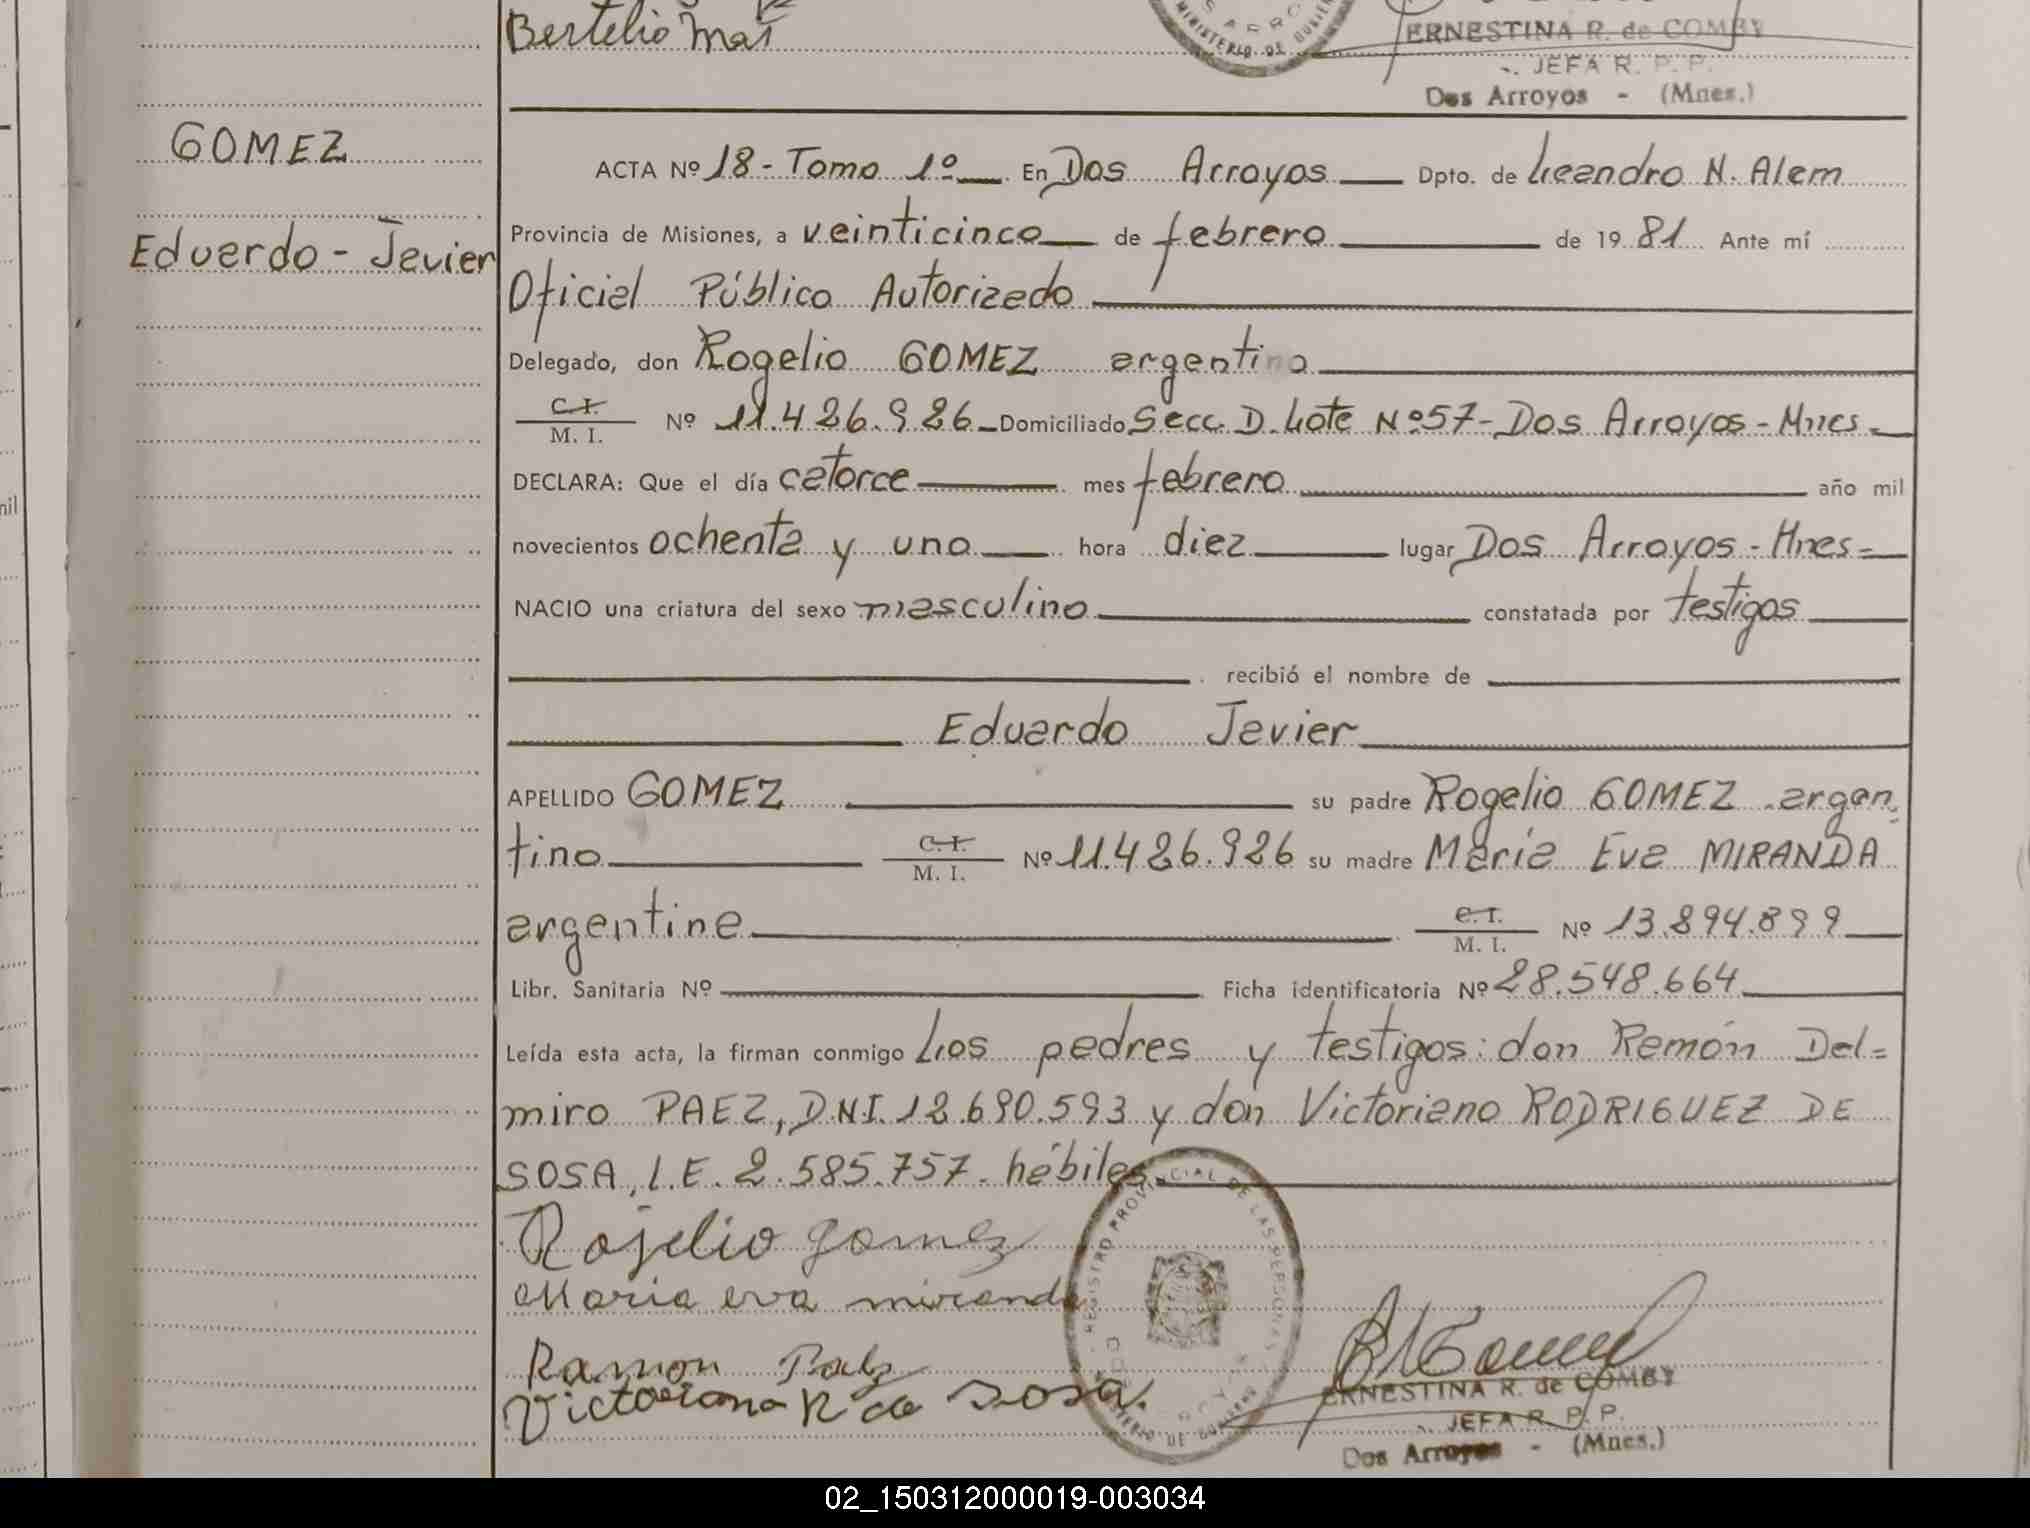 Bertelio
MINISTERIO DE GOBIERNO
ERNESTINA R. de COMBY
JEFA R. P. P.
Dos Arroyos - (Mnes.)
GOMEZ
Eduardo - Javier
ACTA Nº 18 - Tomo 1º En Dos Arroyos Dpto. de Leandro N. Alem
Provincia de Misiones, a veinticinco de febrero de 1981 Ante mí
Oficial Público Autorizado
Delegado, don Rogelio GOMEZ argentino
C.I. M. I. Nº 11.426.926 Domiciliado Secc. D. Lote Nº 57 - Dos Arroyos - Mnes
DECLARA: Que el día catorce mes febrero año mil
novecientos ochenta y uno hora diez lugar Dos Arroyos - Mnes
NACIO una criatura del sexo masculino constatada por testigos
recibió el nombre de
Eduardo Javier
APELLIDO GOMEZ su padre Rogelio GOMEZ argen
tino C.I. M. I. Nº 11.426.926 su madre María Eva MIRANDA
argentina C.I. M. I. Nº 13.894.899
Libr. Sanitaria Nº Ficha identificatoria Nº 28.548.664
Leída esta acta, la firman conmigo Los padres y testigos: don Ramón Del=
miro PAEZ, D.N.I. 12.690.593 y don Victoriano RODRIGUEZ DE
SOSA, L.E. 2.585.757. hábiles
Rojelio gomez
Maria eva miranda
Ramon Paez
Victoriano R de Sosa.
REGISTRO PROVINCIAL DE LAS PERSONAS
MINISTERIO DE GOBIERNO
ERNESTINA R. de COMBY
JEFA R. P. P.
Dos Arroyos - (Mnes.)
02_150312000019-003034